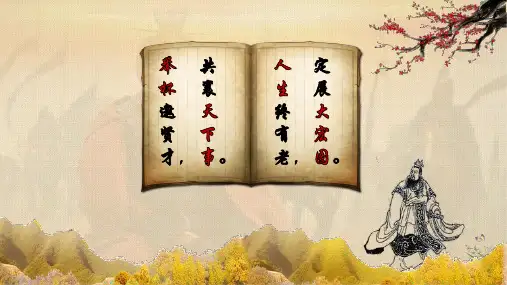 举杯邀贤才，
共襄天下事。
人生终有老，
定展大宏图。